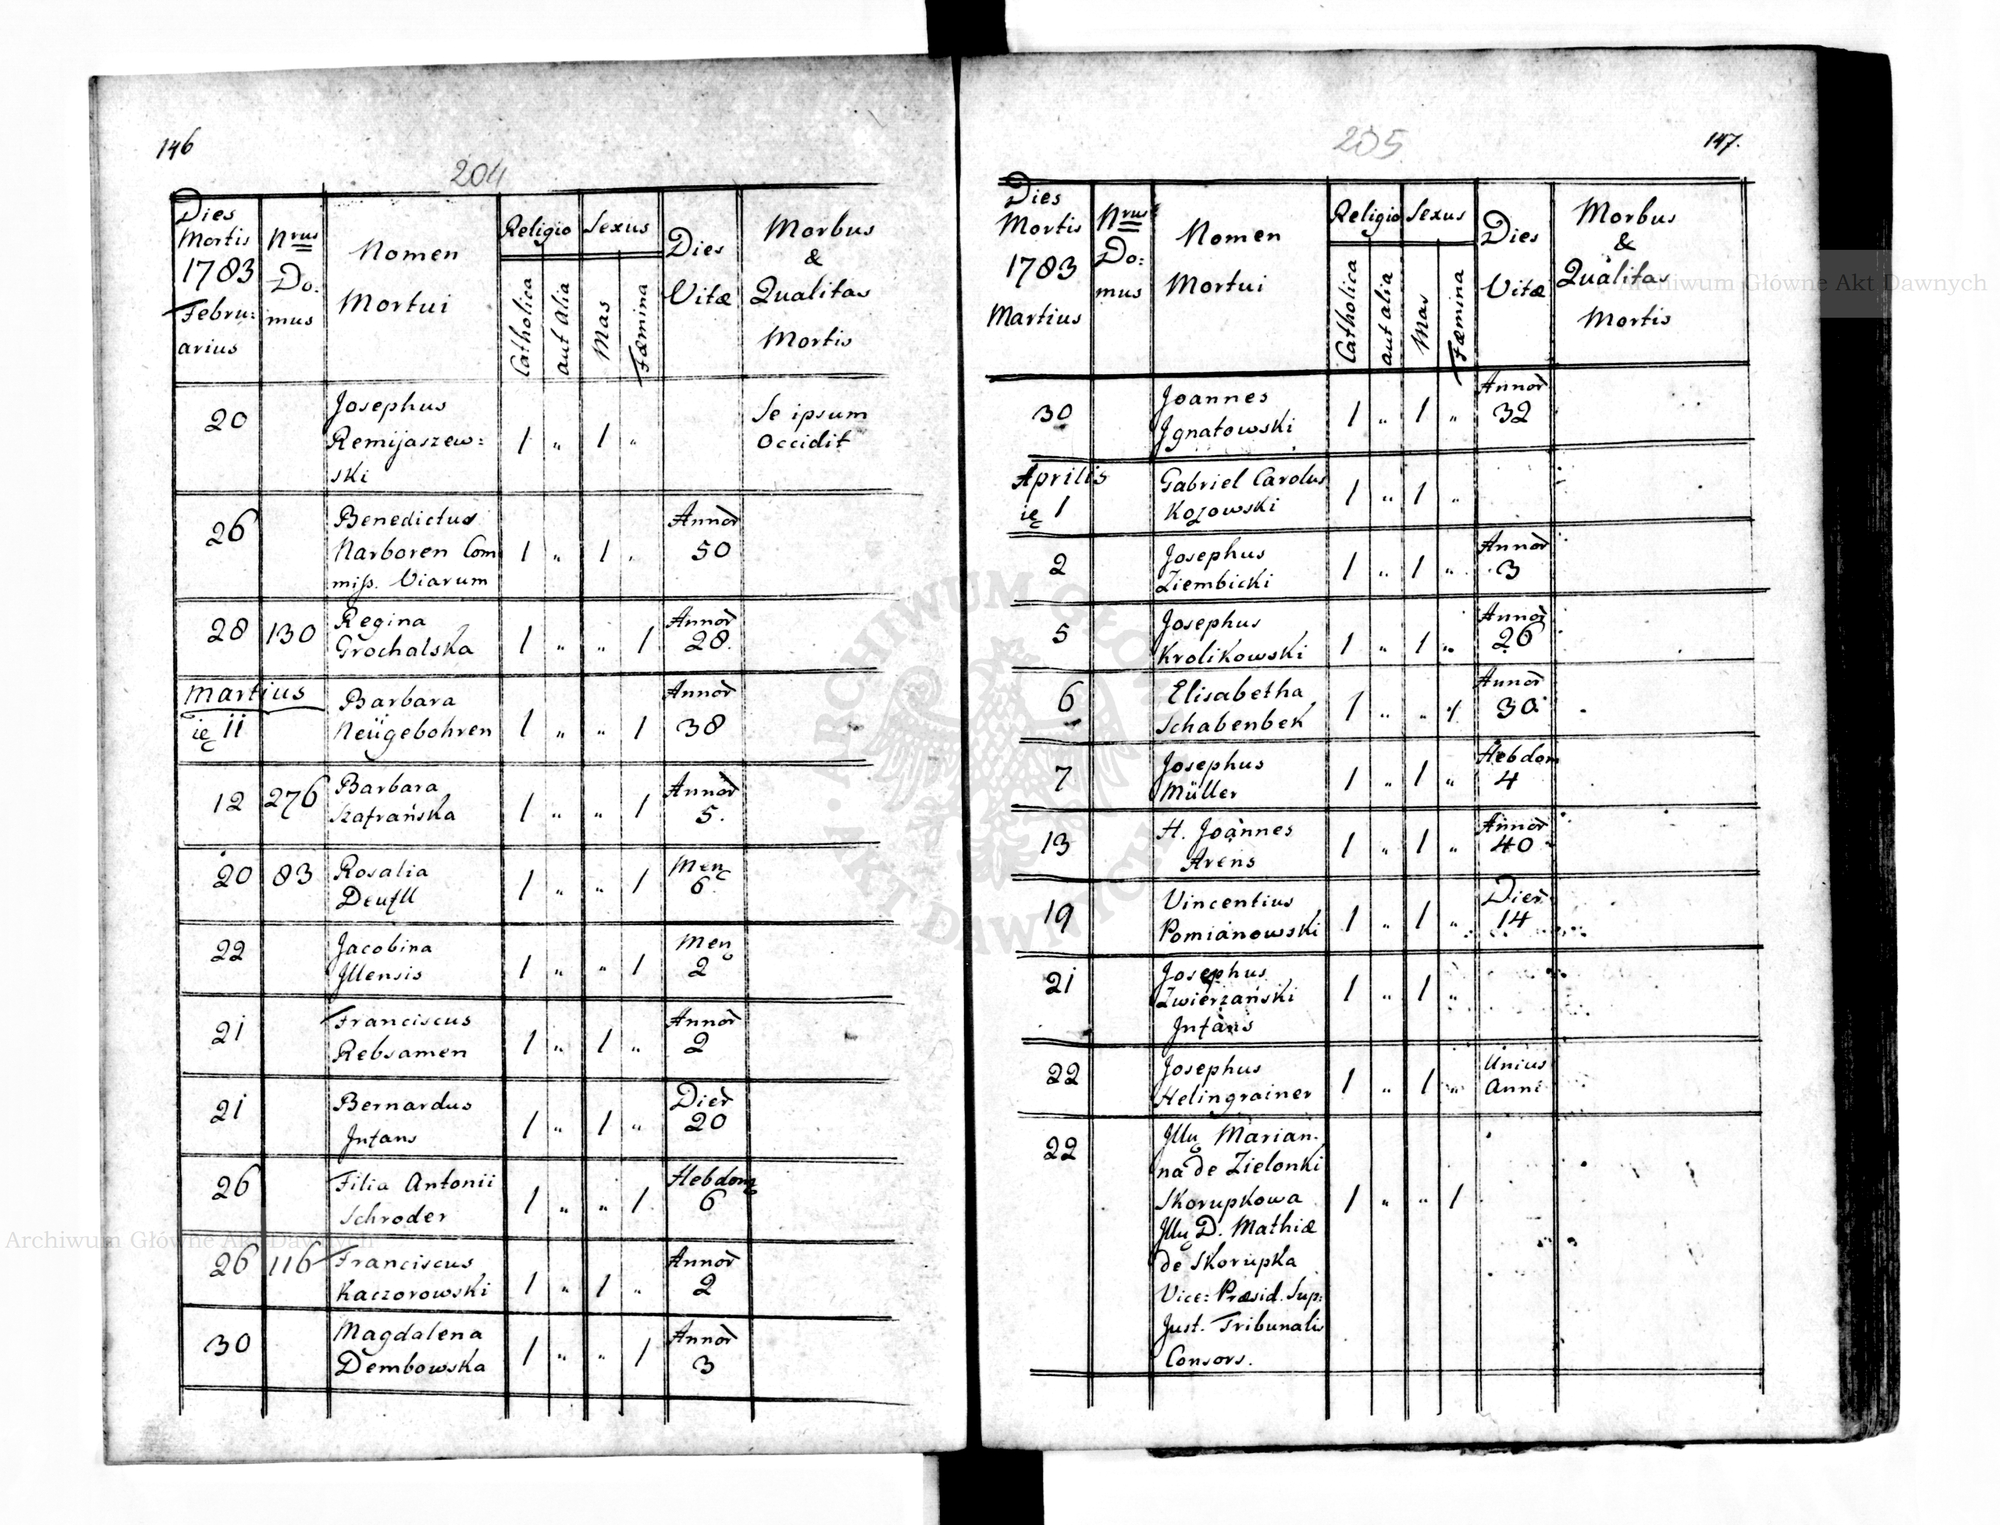 146
204
Dies
Mortis
1783
Febru:
arius
Nrus
Do:
mus
Nomen
Mortui
Religio
Catholica
aut alia
Sexus
Mas
Fæmina
Dies
Vitæ
Morbus
&
Qualitas
Mortis
20 Josephus
Remijaszew:
ski 1 " 1 "
Se ipsum
Occidit
26 Benedictus
Narboren Com
miss. Viarum 1 " 1 "
Annor
50
28 130 Regina
Grochalska 1 " " 1
Annor
28.
Martius
ię 11 Barbara
Neügebohren 1 " " 1
Annor
38
12 276 Barbara
Szafrańska 1 " " 1
Annor
5.
20 83 Rosalia
1 " " 1
Men
6.
22 Jacobina
Illensis 1 " " 1
Men
2
21 Franciscus
Rebsamen 1 " 1 "
Annor
2
21 Bernardus
Infans 1 " 1 "
Dier
20
26 Filia Antonii
Schroder 1 " " 1
Hebdom
6
26 116 Franciscus
Kaczorowski 1 " 1 "
Annor
2
30 Magdalena
Dembowska 1 " " 1
Annor
3
205
147.
Dies
Mortis
1783
Martius
Nrus
Do:
mus
Nomen
Mortui
Religio
Catholica
aut alia
Sexus
Mas
Fæmina
Dies
Vitæ
Morbus
&
Qualitas
Mortis
30 Joannes
Ignatowski 1 " 1 "
Annor
32
Aprilis
ię 1 Gabriel Carolus
Kozowski 1 " 1 "
2 Josephus
Ziembicki 1 " 1 "
Annor
3
5 Josephus
Krolikowski 1 " 1 "
Annor
26
6 Elisabetha
Schabenbek 1 " " 1
Annor
30
7 Josephus
Müller 1 " 1 "
Hebdom
4
13 H. Joannes
Arens 1 " 1 "
Annor
40
19 Vincentius
Pomianowski 1 " 1 "
Dier
14
21 Josephus
Zwierzański
Infans 1 " 1 "
22 Josephus
Helingrainer 1 " 1 "
Unius
Anni
22 Illu Marian-
na de Zielonki
Skorupkowa 1 " " 1
Illu D. Mathiæ
de Skorupka
Vice: Præsid. Sup:
Just. Tribunalis
Consors.
Archiwum Główne Akt Dawnych
Archiwum Główne Akt Dawnych
ARCHIWUM GŁÓWNE AKT DAWNYCH